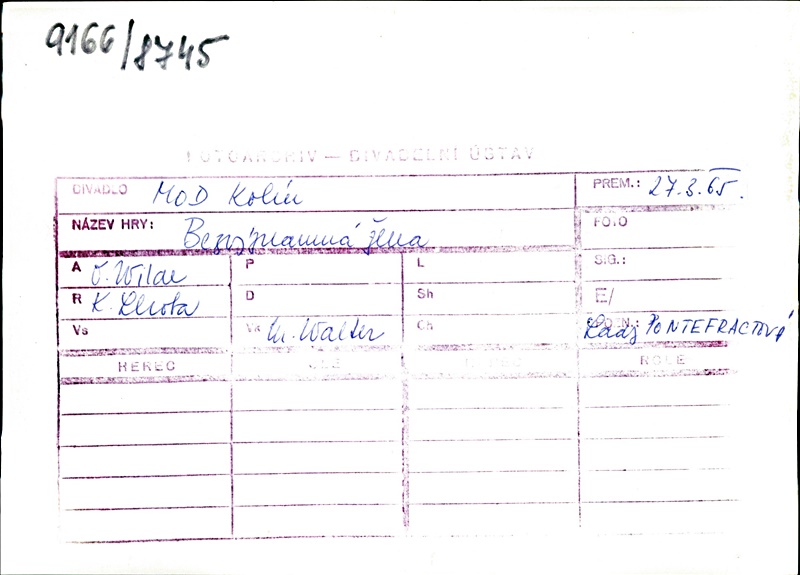 9166/8745
FOTOARCHIV — DIVADELNÍ ÚSTAV
DIVADLO MOD Kolín PREM.: 27.3.65.
NÁZEV HRY: Bezvýznamná žena FOTO
A O. Wilde P L SIG.:
R K. Lhota D Sh E/
Vs Vk M. Walter Ch Lady PONTEFRACTOVÁ
HEREC ROLE HEREC ROLE